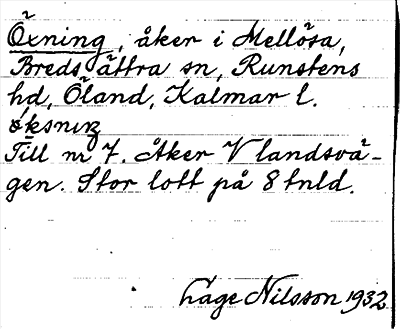 Öxning, åker i Mellösa,
Bredsättra sn, Runstens
hd, Öland, Kalmar l.
øksnıŋ
Till nr 7. Åker V landsvä-
gen. Stor lott på 8 tnld.
Låge Nilsson 1932